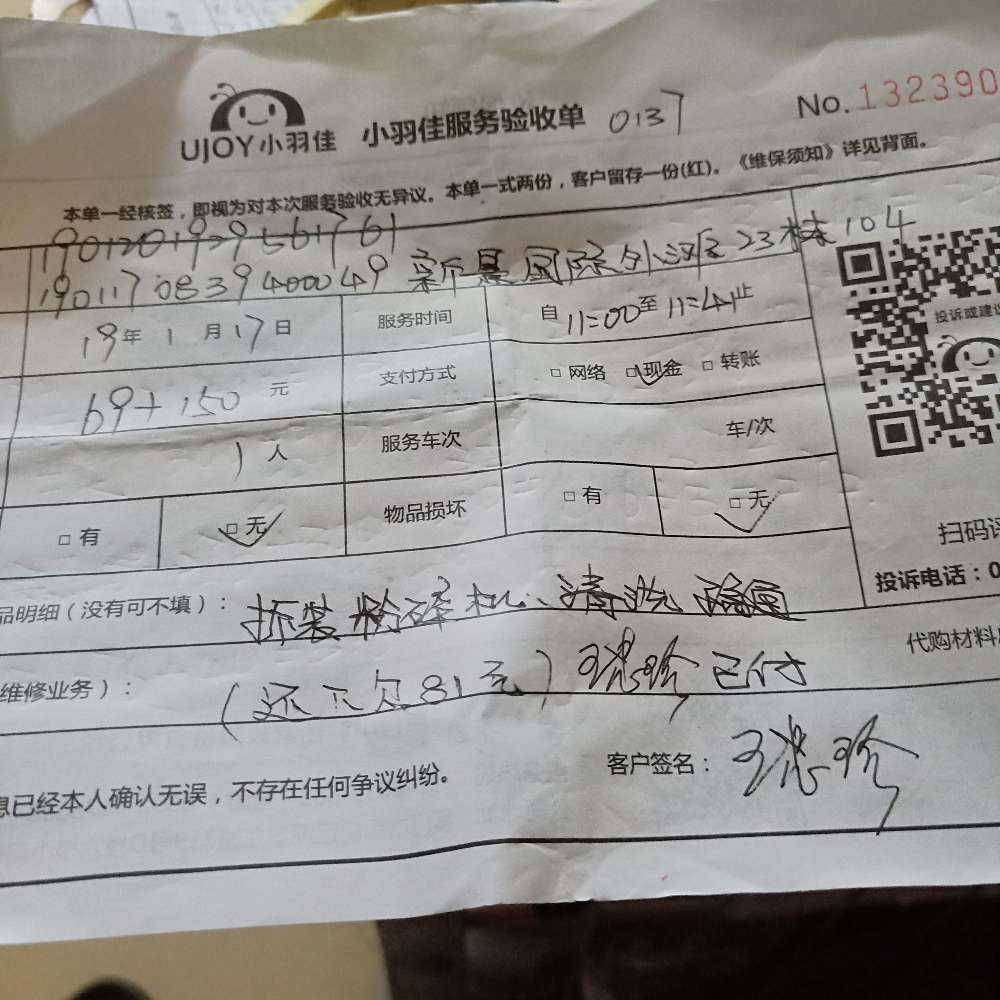 UJOY小羽佳 小羽佳服务验收单 0137 No.132390
本单一经核签，即视为对本次服务验收无异议。本单一式两份，客户留存一份(红)。《维保须知》详见背面。
1901201929561761
1901170839400049 新景国际外滩23栋104
19年1月17日 服务时间 自11:00至11:41止
投诉或建议
69+150元 支付方式 □网络 □现金 □转账
1人 服务车次 车/次
□有 □无 物品损坏 □有 □无
扫码评
投诉电话：0
品明细（没有可不填）： 拆装粉碎机、清洗
代购材料
维修业务）： （还下欠81元） 已付
客户签名：
息已经本人确认无误，不存在任何争议纠纷。